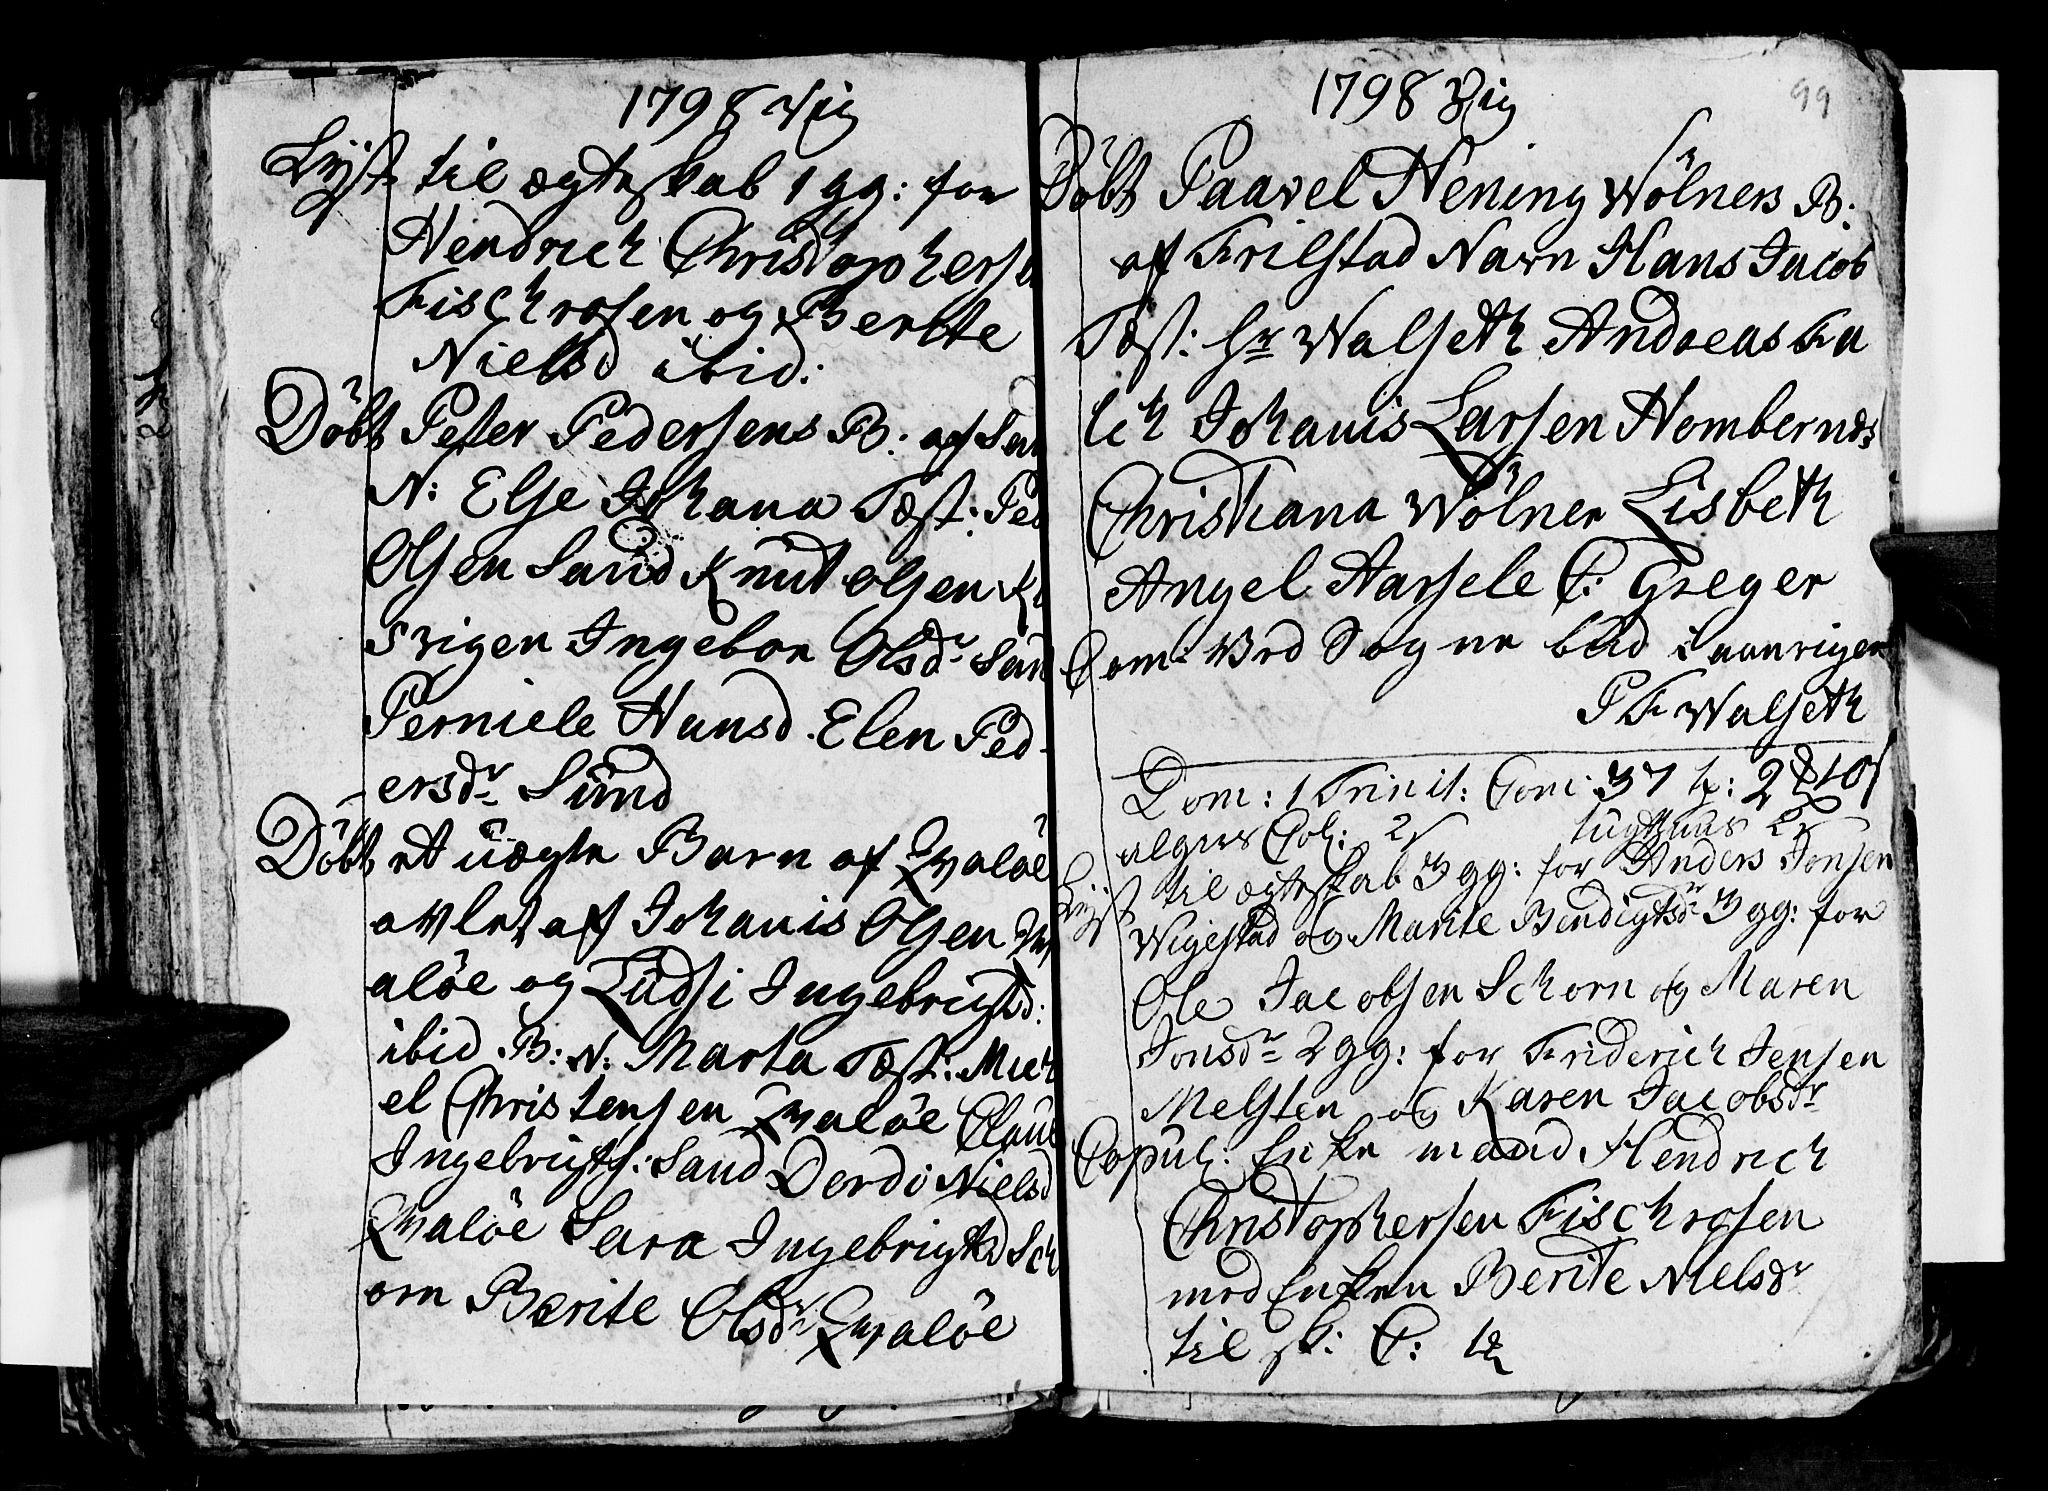 1798 Vig
Lÿst til ægteskab 1 gg: for
Hendrich Christophersen
Fischrosen og Berete
Nielsd ibid:
Döbt Peter Pedersens B: af San
N: Else Johana Tæst: Ped
Olsen Sand Knut Olsen Ki
svigen Ingebor Olsdr San
Perniele Hansd. Elen Ped-
ersdr Sund
Döbt et üægte Barn af Qvalöe
avlet af Johanis Olsen Qv
alöe og Ludsi Ingebrigtsd:
ibid. B: N: Marta Tæst: Mich
el Christensen Qvalöe Claus
Ingebrigts: Sand Dordi Nielsd
Qvalöe Sara Ingebrigtsd Sch
orn Berite Olsdr Qvalöe
99
1798 Vig
Döbt Paavel Hening Wölners B:
af Trilstad Navn Hans Jacob
Tæst: hr Walseth Andreas Fa
lch Johanis Larsen Hombernæs
Christiana Wölner Lisbeth
Angel Aarsele C: Greger
Com: ved Sogne bud i aavrigen
P F Walseth
Dom: 1 Trinit: Com: 37 tf: 2
algns Col: 2 tugthuus
Lÿst til ægteskab 3 gg: for Anders Jonsen
Wigestad og Marite Bendigtsdr 3 gg: for
Ole Jacobsen Schorn og Maren
Jonsdr 2 gg: for Friderich Jensen
Melsten og Karen Jacobsdr
Copul: Enke mand Hendrich
Christophersen Fischrosen
med Enken Berite Nielsdr
til sk: C: